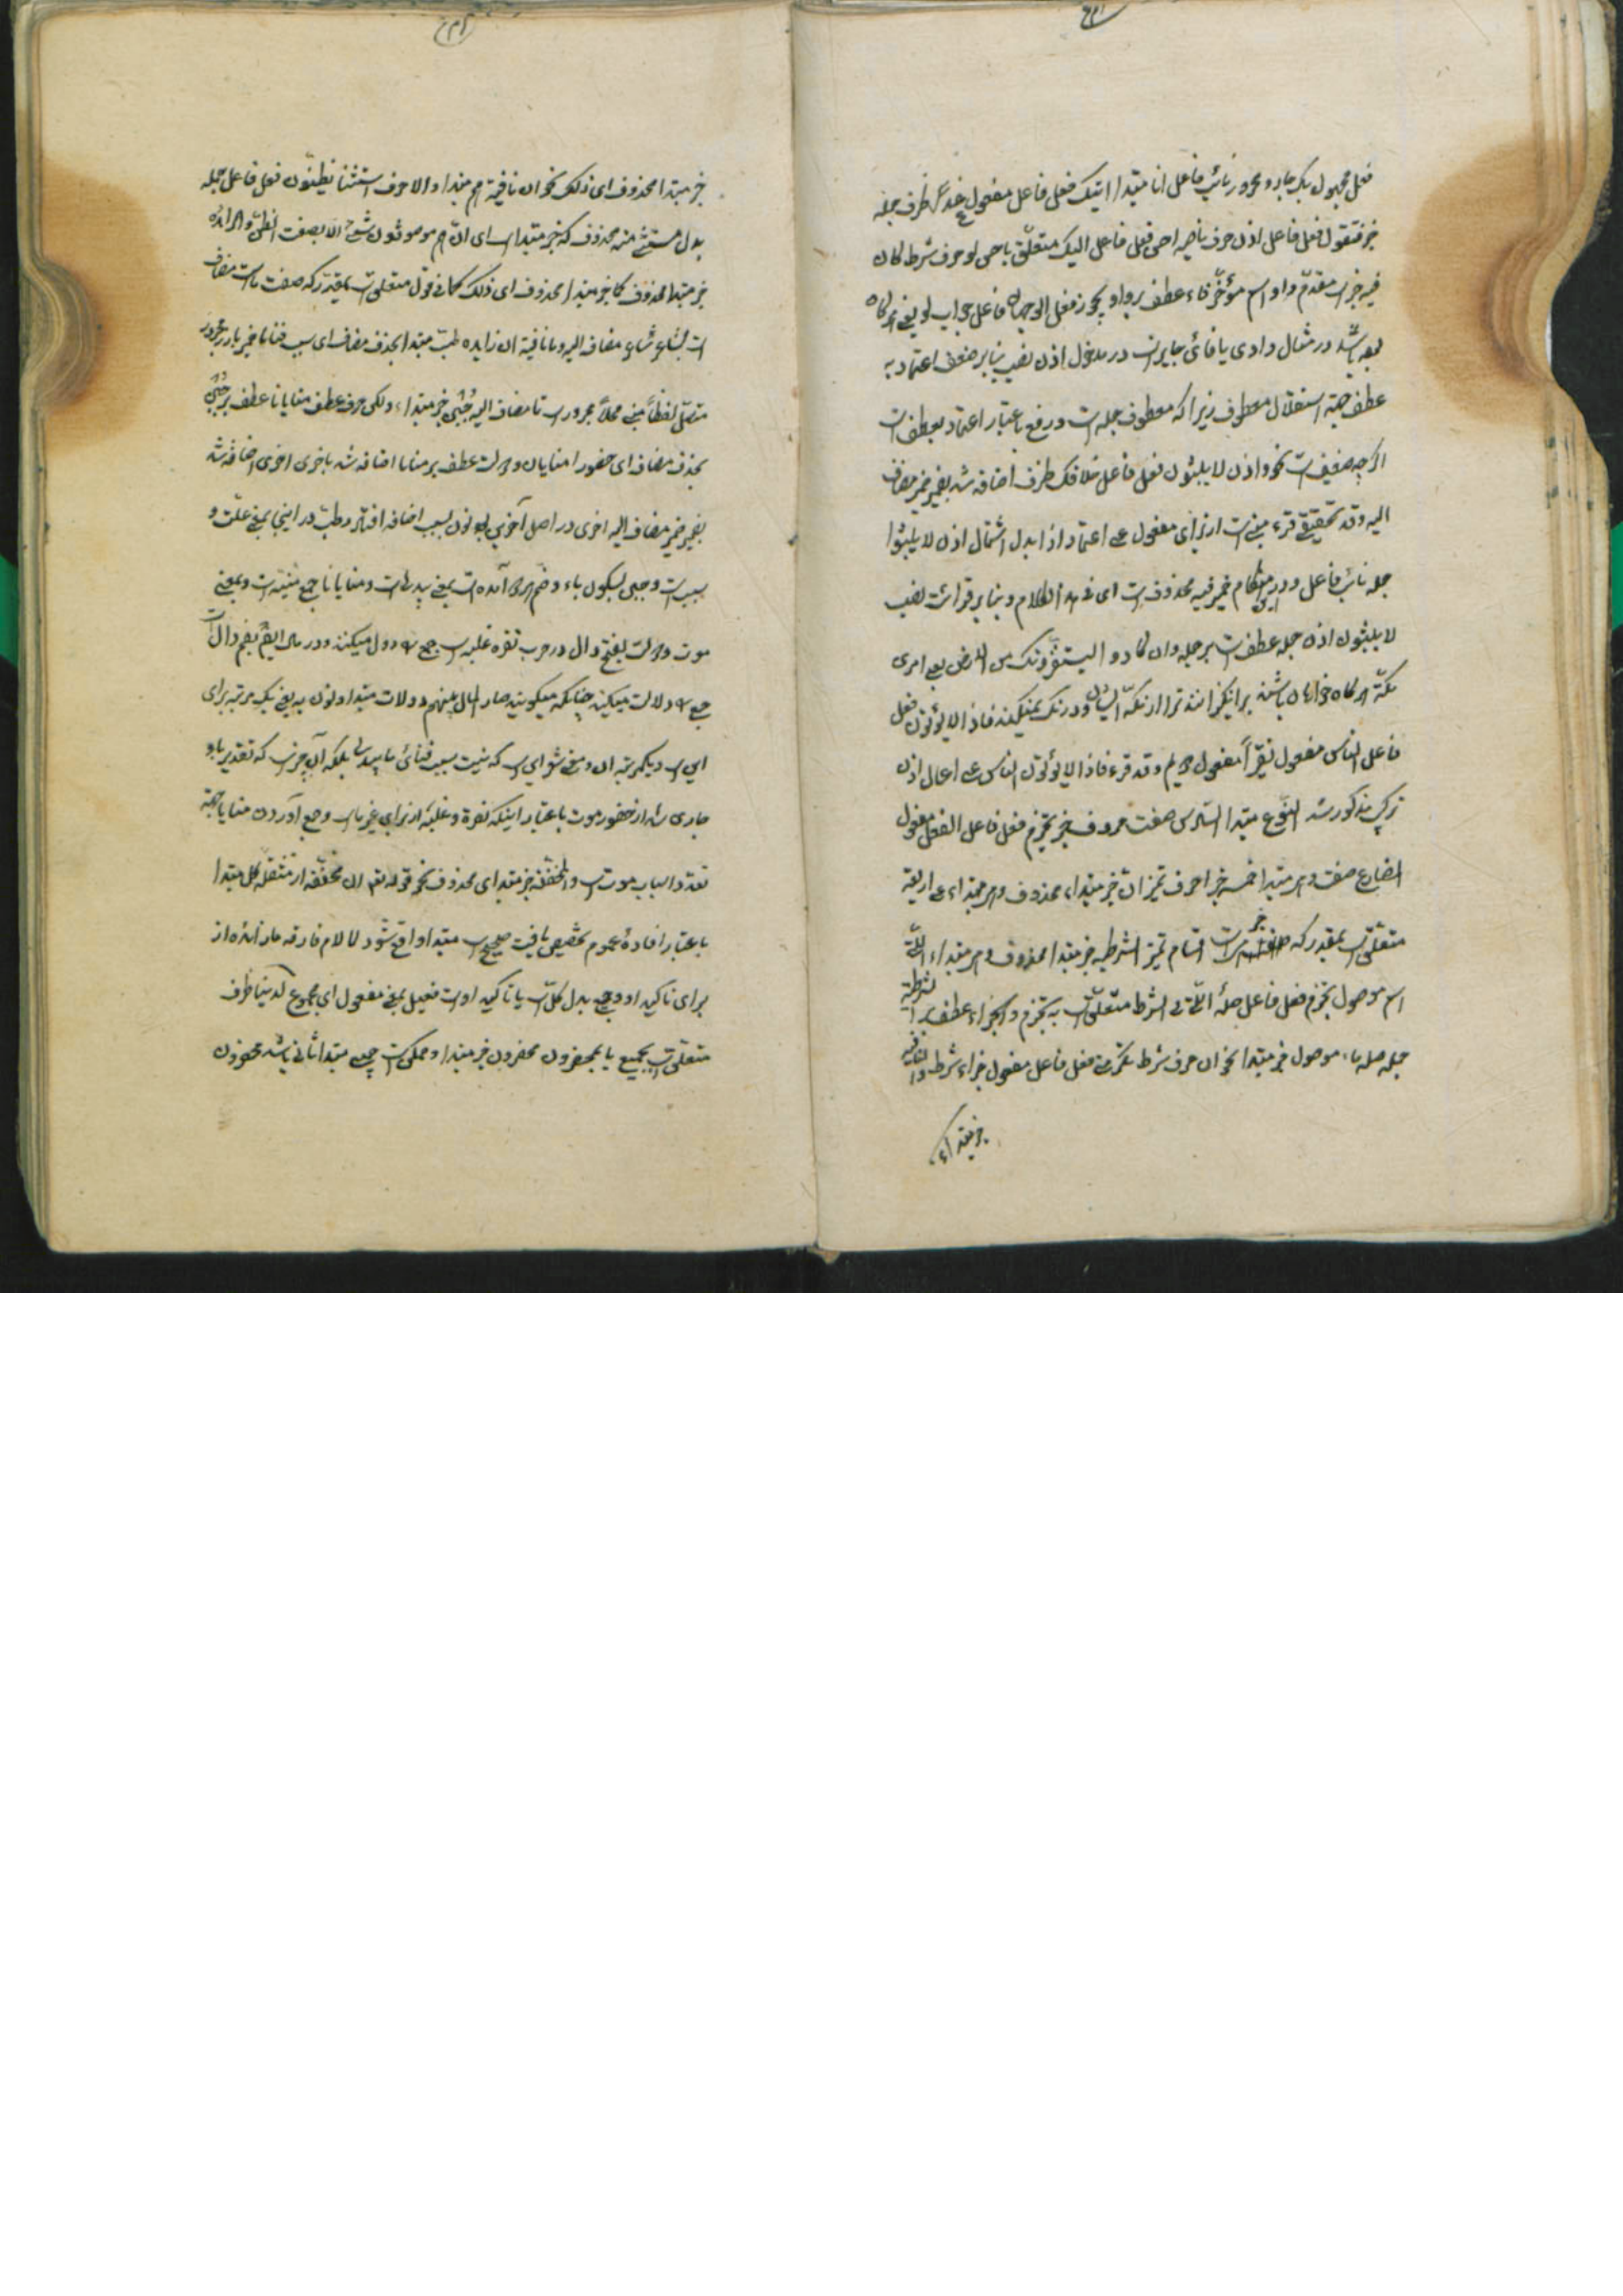 فعل مجهول بک جار و مجرور نائب فاعل انا مبتدا اتیک فعل فاعل مفعول غدا ظرف جمله
خبر فتقول فعل فاعل اذن حرف ناصبه احسن فعل فاعل الیک متعلق باحسن لو حرف شرط کان
فیه خبر است مقدم واو اسم مؤخر فاء عطف بر واو یجوز فعل الوجهان فاعل جواب لو یعنی هرگاه
بعد باشد در مثال واوی یا فائی جایز است در مدخول اذن نصب بنابر ضعف اعتماد به
عطف جهة استقلال معطوف زیرا که معطوف جمله است و رفع باعتبار اعتماد بعطف است
اگرچه ضعیف است نحو واذن لا یلبثون فعل فاعل خلافک ظرف اضافه شد بغیر ضمیر مضاف
الیه وقد تحقیق قرء مبنی است از برای مفعول علی اعتماد اذا بدل اشتمال اذن لا یلبثوا
جمله نائب فاعل و در این مقام ضمیر فیه محذوف است ای فی هذا الکلام و بنابر قرائت نصب
لا یلبثون اذن جمله عطف است بر جمله وان کادوا لیستفزونک من الارض یعنی امری
مکه هرگاه خواهان باشند برانگیزانند ترا از مکه ایشان و درنک نمیکنند فاذا لا یؤتون فعل
فاعل الناس مفعول نقیرا مفعول دویم وقد قرء فاذا لا یؤتون الناس علی اعمال اذن
ترکیب مذکور شد النوع مبتدا السادس صفت حروف خبر تجزم فعل فاعل الفعل مفعول
المضارع صفت وهی مبتدا خمسة خبر احرف تمیز ان خبر مبتداء محذوف وهی مبتداء علی اربعة
متعلق است بمقدر که خبر است اقسام تمیز الشرطیه خبر مبتدا محذوف وهی مبتداء التی
اسم موصول تجزم فعل فاعل صله التی الشرط متعلق است به تجزم والجزاء عطف بر الشرطیة
جمله صله با موصول خبر مبتدا نحو ان حرف شرط تکرمنی فعل فاعل مفعول جزاء شرط والنافیه
خبر مبتداء
خبر مبتدا محذوف ای ذلک نحو ان نافیة هم مبتدا والا حرف استثنا یظنون فعل فاعل جمله
بدل مستثنی منه محذوف که خبر مبتدا است ای ان هم موصوفون بشیء الا بصفت الظن والزائده
خبر مبتدا محذوف کما خبر مبتدا محذوف ای ذلک کما فی قول متعلق است بمقدر که صفت ما است مضاف
است لشاعر شاعر مضاف الیه وما نافیة ان زایده طب مبتدا بحذف مضاف ای سبب فنانا ضمیر بارز مجرور
متصل لفظا مبنی محلا مجرور است تا مضاف الیه جبن خبر مبتداء ولکن حرف عطف منایانا عطف بر جبن
بحذف مضاف ای حضور منایانا ودولت عطف بر منایا اضافه شد باخری اخری اضافه شد
بغیر ضمیر مضاف الیه اخری در اصل آخرین بود نون بسبب اضافه افتاد وطب در اینجا بمعنی علت و
سبب است وجبن بسکون باء وضم هر دو آمده است بمعنی بددلی است ومنایانا جمع منیة است وبمعنی
موت ودولت بفتح دال در حرب تفره غلبه است جمع دول میکنند ودر مال ایضا بضم دال است
جمع دولات میکنند چنانکه میگویند صار المال بینهم دولات مبتداولون به یعنی یک مرتبه برای
این است ویکمرتبه آن ومعنی شعر این است که نیست سبب فنای ما بددلی بلکه آن چیز است که تقدیر باو
جاری شد از حضور موت باعتبار اینکه نفرة وغلبه از برای غیر ما است وجمع آوردن منایا جهة
تعدد اسباب موت است والمخففة خبر مبتدای محذوف نحو قوله تعالی ان مخففه از مثقله کل مبتدا
باعتبار افادهٔ عموم تخصیص یافت صحیح است مبتدا واقع شود لما لام فارقه ما زائده از
برای تاکید او وجمیع بدل کل است یا تاکید او است فعیل بمعنی مفعول ای مجموع لدینا ظرف
متعلق است بجمیع یا بمحضرون محضرون خبر مبتدا وممکن است جمیع مبتدا ثانی باشد محضرون